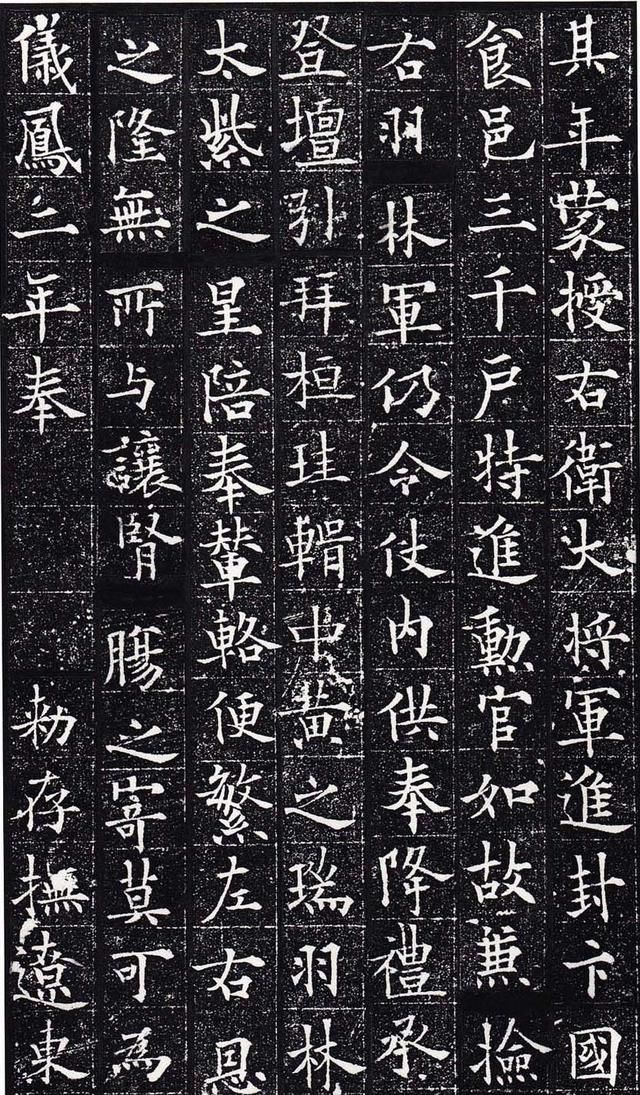 其年蒙授右衛大將軍進封卞國
食邑三千戶特進勳官如故兼撿
右羽林軍仍令仗內供奉降禮承
登壇引拜桓珪輯中黃之瑞羽林
太紫之星陪奉輦輅便繁左右恩
之隆無所与讓腎膓之寄莫可為
儀鳳二年奉勑存撫遼東